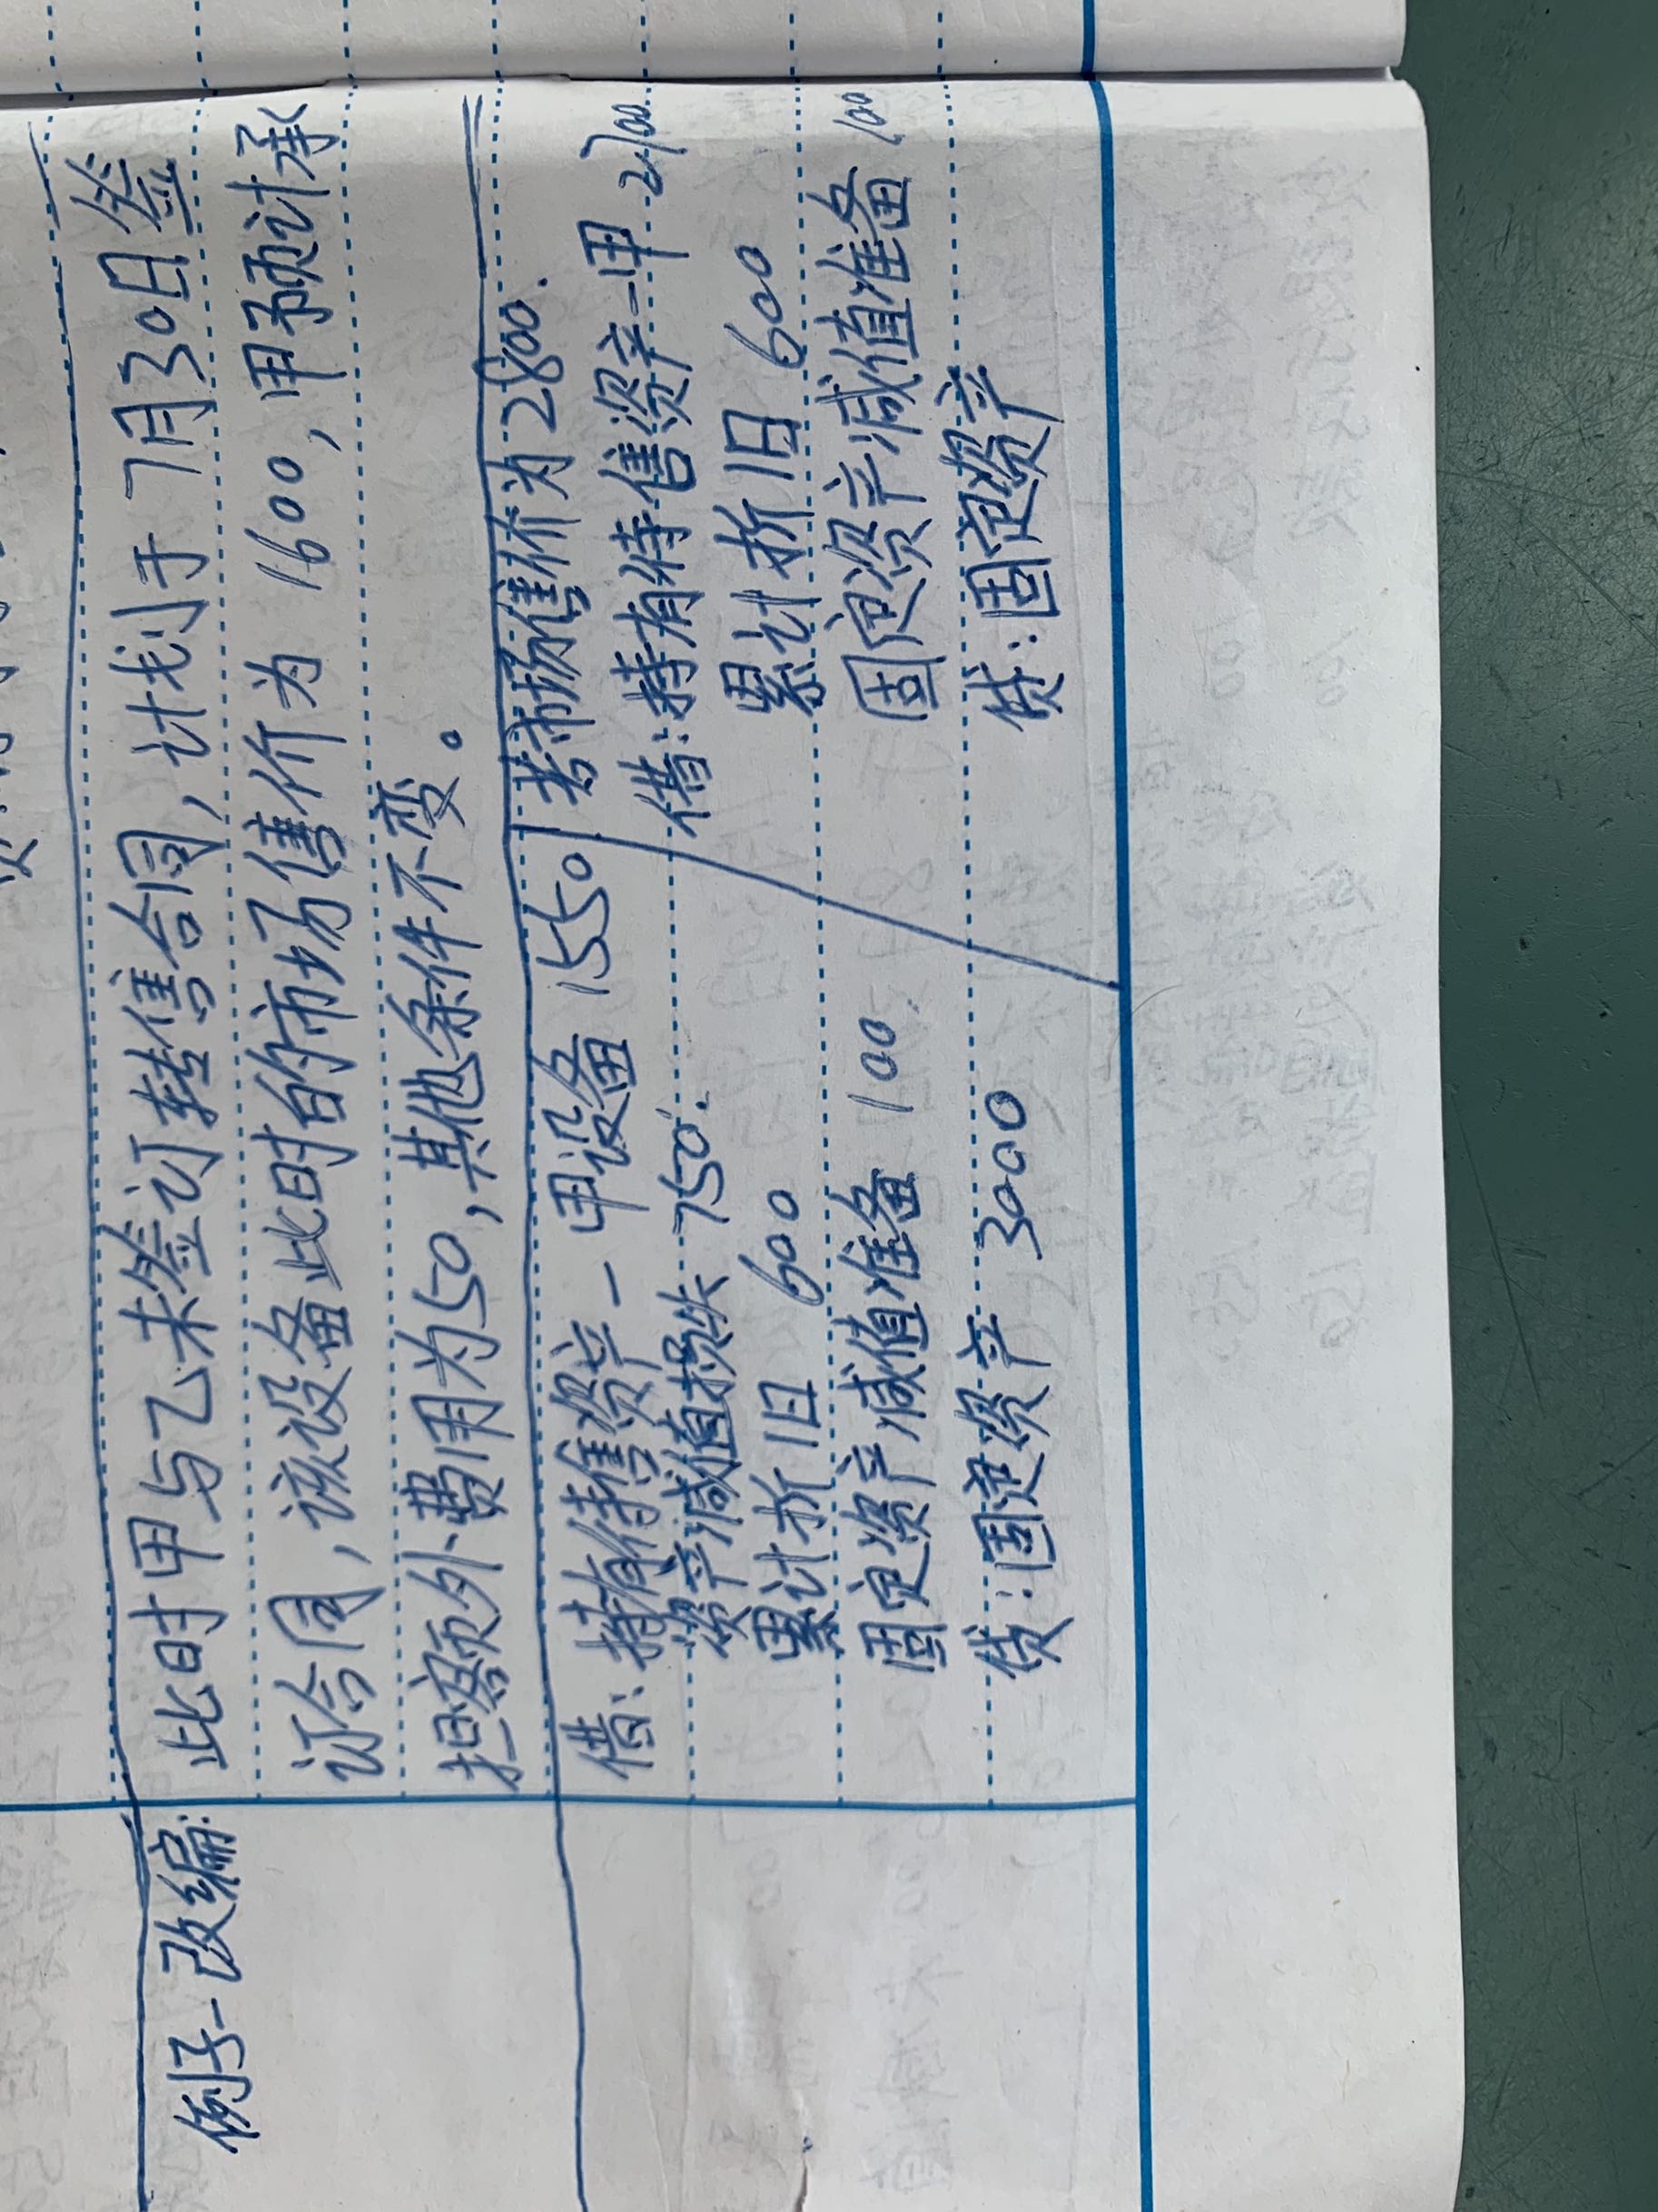 例子一改编:
此时甲与乙未签订转售合同, 计划于7月30日签
订合同, 该设备此时的市场售价为 1600, 甲预计承
担额外费用为50, 其他条件不变。
借: 持有待售资产 - 甲设备 1550
资产减值损失 750.
累计折旧 600
固定资产减值准备 100
贷: 固定资产 3000
若市场售价为2800.
借: 持有待售资产-甲
累计折旧 600
固定资产减值准备 100
贷: 固定资产